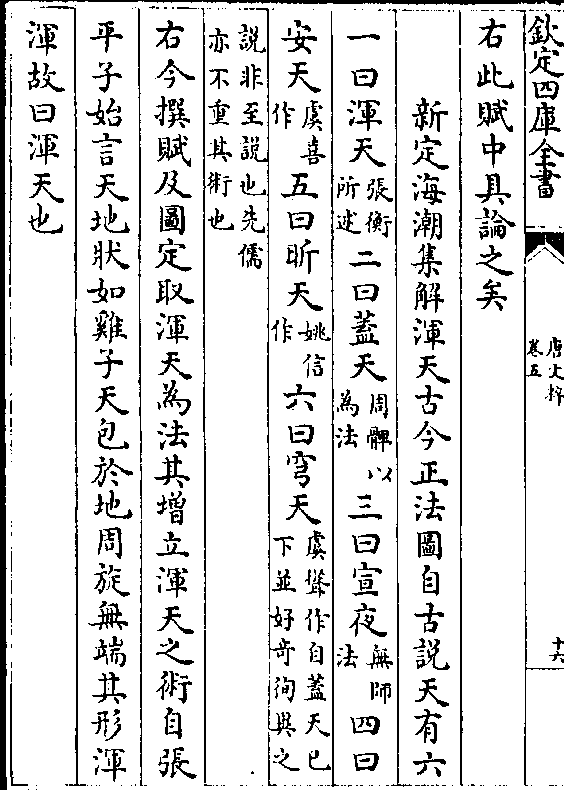 欽定四庫全書
唐文粹
卷五
十六
右此賦中具論之矣
新定海潮集解渾天古今正法圖自古説天有六
一曰渾天張衡所述二曰蓋天周髀以為法三曰宣夜無師法四曰
安天虞喜作五曰昕天姚信作六曰穹天虞聳作自蓋天已下並好奇徇異之
説非至説也先儒亦不重其術也
右今撰賦及圖定取渾天為法其增立渾天之術自張
平子始言天地狀如雞子天包於地周旋無端其形渾
渾故曰渾天也